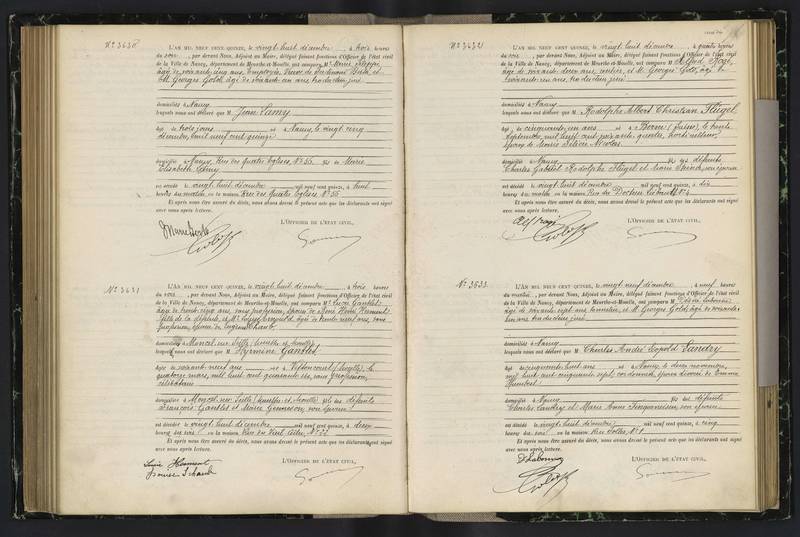 N° 3630
L'AN MIL NEUF CENT QUINZE, le vingt huit décembre, à trois heures
du soir, par devant Nous, Adjoint au Maire, délégué faisant fonctions d'Officier de l'état civil
de la Ville de Nancy, département de Meurthe-et-Moselle, ont comparu M.
âgé de soixante cinq ans, Employé, et
M. Georges Gold, âgé de soixante un ans, traducteur juré
domiciliés à Nancy
lesquels nous ont déclaré que M Jean Lamy
âgé de trois jours né à Nancy, le vingt cinq
décembre, mil neuf cent quinze
domicilié à Nancy, Rue des Quatre Eglises, N° 55 fils de Marie
Elisabeth Lamy
est décédé le vingt huit décembre mil neuf cent quinze, à huit
heures du matin, en la maison, Rue des Quatre Eglises, N° 55
Et après nous être assuré du décès, nous avons dressé le présent acte que les déclarants ont signé
avec nous après lecture.
L'OFFICIER DE L'ÉTAT CIVIL,
N° 3631
L'AN MIL NEUF CENT QUINZE, le vingt huit décembre, à trois heures
du soir, par devant Nous, Adjoint au Maire, délégué faisant fonctions d'Officier de l'état civil
de la Ville de Nancy, département de Meurthe-et-Moselle, ont comparu Me Lucie Gantlet
âgée de trente cinq ans, sans profession, épouse de
âgée de trente neuf ans, sans
profession, épouse de Eugène Schaub
domiciliés à Moncel-sur-Seille (Meurthe et Moselle)
lesquels nous ont déclaré que M Hermine Gantlet
âgée de soixante neuf ans née à (Moselle), le
quatorze mars, mil huit cent quarante six, sans profession,
célibataire
domiciliée à Moncel-sur-Seille (Meurthe et Moselle) fille des défunts
François Gantlet et Marie son épouse
est décédée le vingt huit décembre mil neuf cent quinze, à deux
heures du soir en la maison,
Et après nous être assuré du décès, nous avons dressé le présent acte que les déclarants ont signé
avec nous après lecture.
L'OFFICIER DE L'ÉTAT CIVIL,
N° 3632
L'AN MIL NEUF CENT QUINZE, le vingt huit décembre, à quatre heures
du soir, par devant Nous, Adjoint au Maire, délégué faisant fonctions d'Officier de l'état civil
de la Ville de Nancy, département de Meurthe-et-Moselle, ont comparu M. Alfred
âgé de soixante deux ans, et M. Georges Gold, âgé de
soixante un ans, traducteur juré
domiciliés à Nancy
lesquels nous ont déclaré que M Rodolphe Albert Christian Flügel
âgé de cinquante un ans né à Berne (Suisse), le trente
septembre, mil huit cent soixante quatre, horticulteur,
époux de Marie Nicolas
domicilié à Nancy fils des défunts
Charles Gabriel Rodolphe Flügel et son épouse
est décédé le vingt huit décembre mil neuf cent quinze, à dix
heures du matin, en la maison, Rue du Docteur
Et après nous être assuré du décès, nous avons dressé le présent acte que les déclarants ont signé
avec nous après lecture.
L'OFFICIER DE L'ÉTAT CIVIL,
N° 3633
L'AN MIL NEUF CENT QUINZE, le vingt neuf décembre, à neuf heures
du matin, par devant Nous, Adjoint au Maire, délégué faisant fonctions d'Officier de l'état civil
de la Ville de Nancy, département de Meurthe-et-Moselle, ont comparu M. Désiré
âgé de soixante sept ans, et M. Georges Gold, âgé de soixante
un ans, traducteur juré
domiciliés à Nancy
lesquels nous ont déclaré que M Charles André Léopold Landry
âgé de cinquante huit ans né à Nancy, le deux novembre,
mil huit cent cinquante sept, cordonnier, époux divorcé de Emma
Humbert
domicilié à Nancy fils des défunts
Charles Landry et Marie Anne son épouse
est décédé le vingt huit décembre mil neuf cent quinze, à cinq
heures du soir, en la maison,
Et après nous être assuré du décès, nous avons dressé le présent acte que les déclarants ont signé
avec nous après lecture.
L'OFFICIER DE L'ÉTAT CIVIL,